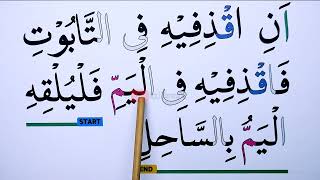 اَنِ اقْذِفِيْهِ فِي التَّابُوْتِ
فَاقْذِفِيْهِ فِي الْيَمِّ فَلْيُلْقِهِ
START
الْيَمُّ بِالسَّاحِلِ
END